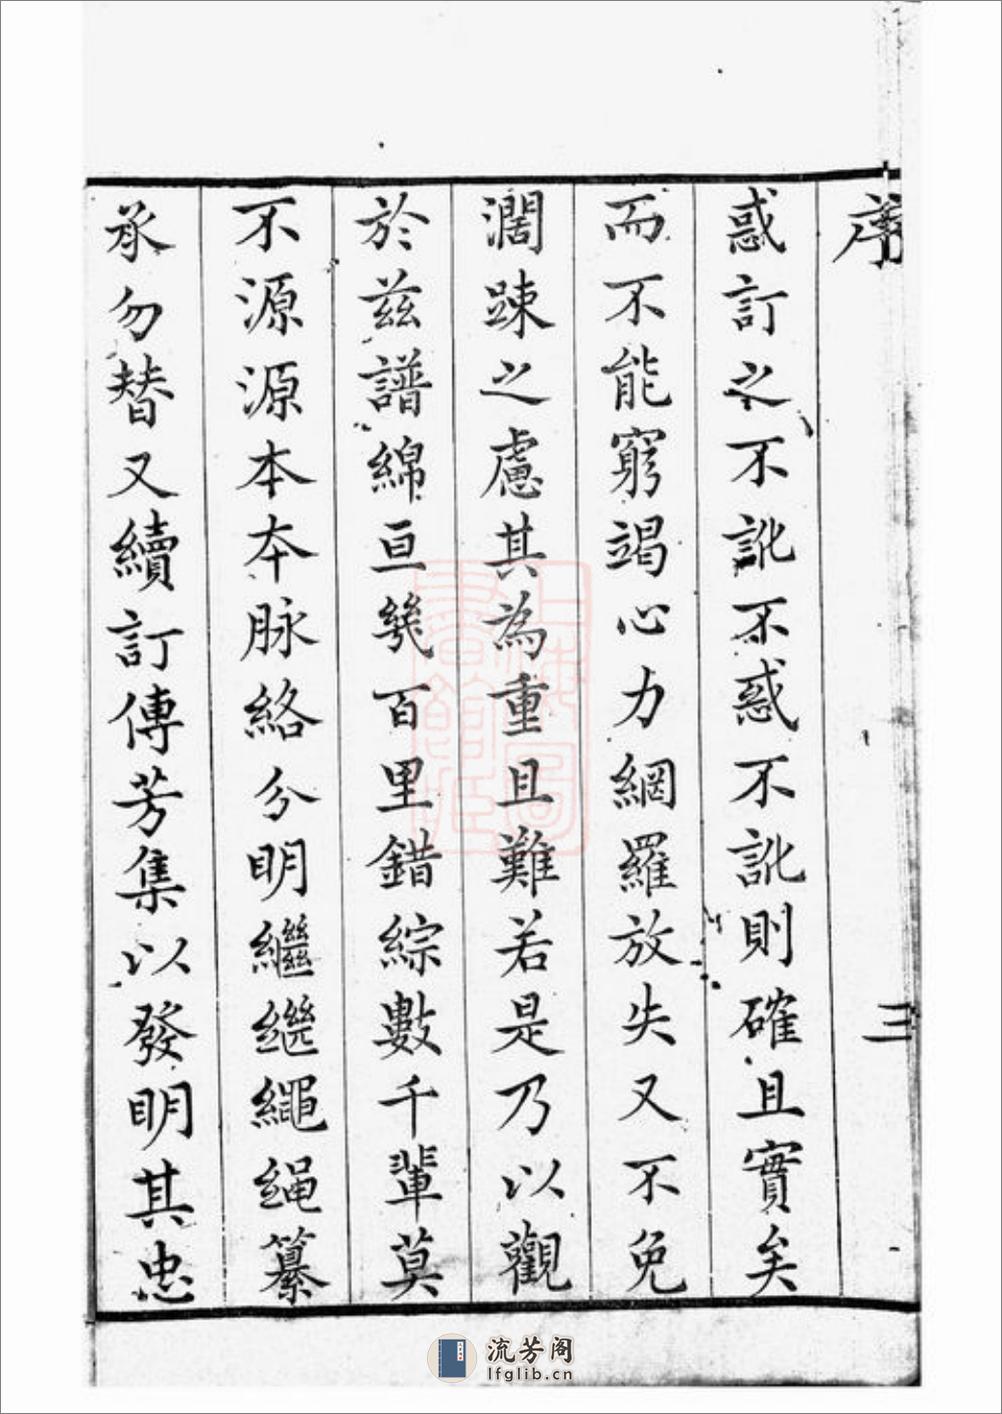 序
三
惑訂之不訛不惑不訛則確且實矣
而不能窮竭心力網羅放失又不免
濶踈之慮其為重且難若是乃以觀
於兹譜綿亘幾百里錯綜數千輩莫
不源源本本脉絡分明繼繼繩繩纂
承勿替又續訂傳芳集以發明其忠
上海圖書館藏
流芳阁
lfglib.cn